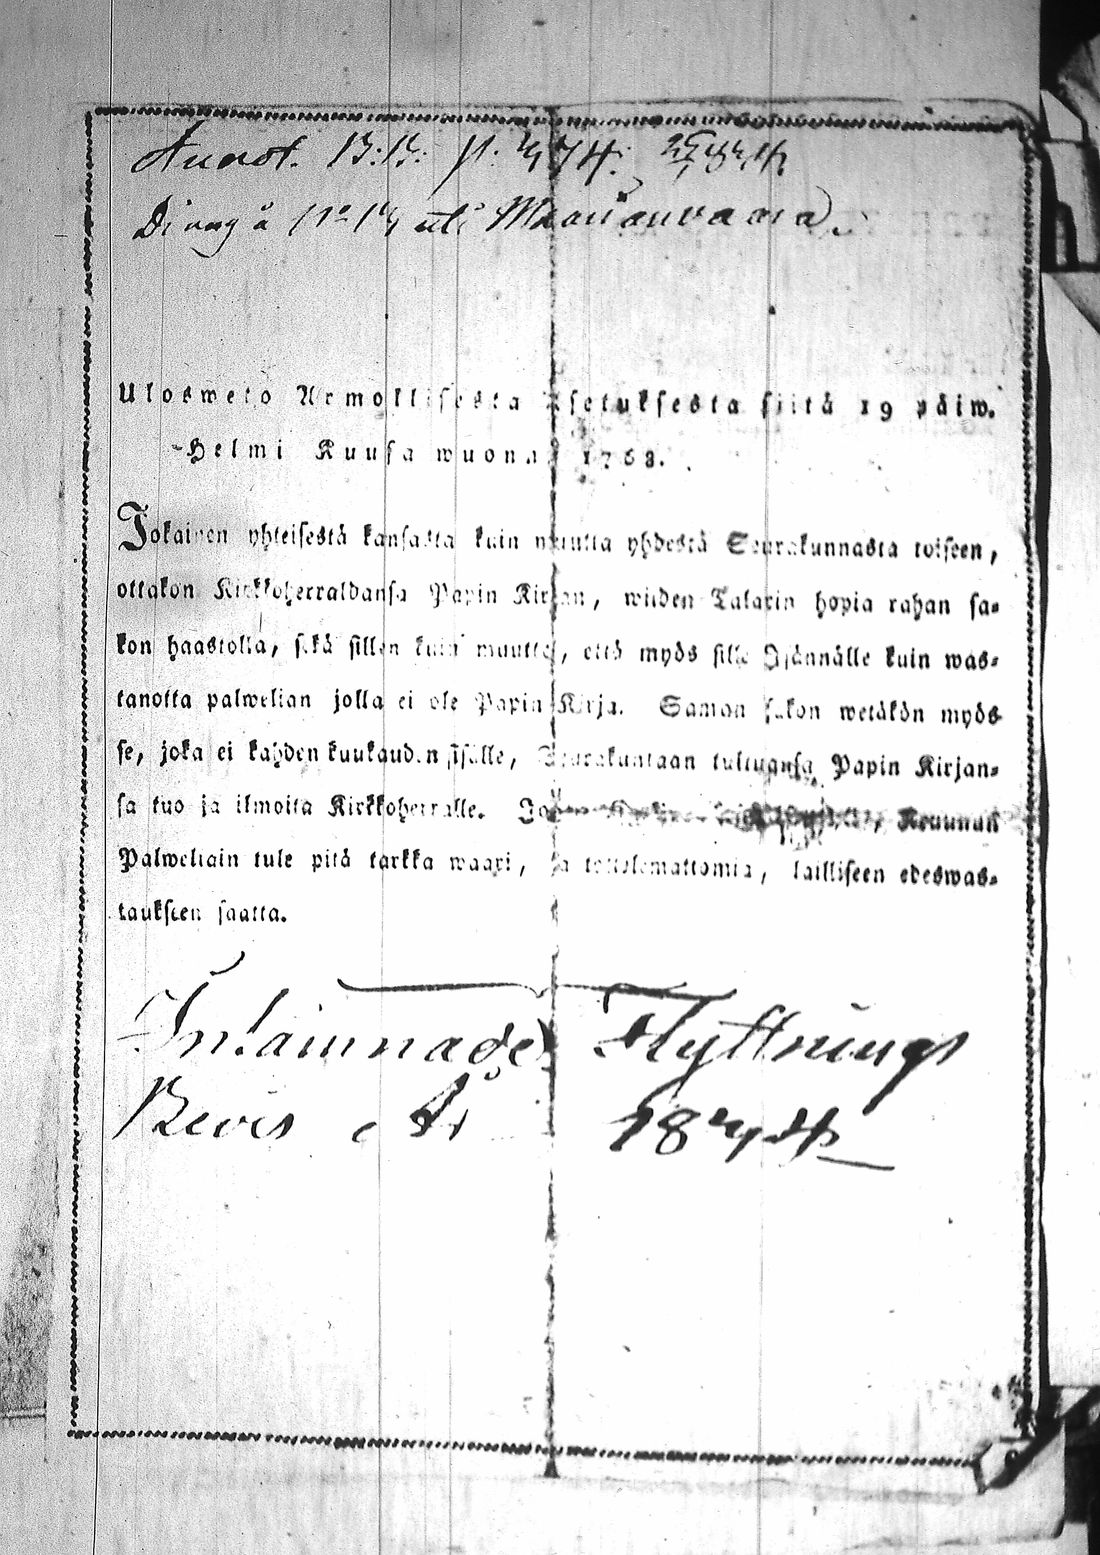 Ulosweto Armollisesta Asetuksesta siitä 19 päiw.
Helmi Kuusa wuonna 1768.
Jokainen yhteisestä kansasta kuin muutta yhdestä Seurakunnasta toiseen,
ottakon Kirkkoherraldansa Papin Kirjan, wiiden Talarin hopia rahan sa-
kon haastolla, sekä sillen kuin muutta, että myös sille Isännälle kuin was-
tanotta palwelian jolla ei ole Papin Kirja. Saman sakon wetäkön myös
se, joka ei kahden kuukauden sisälle, Seurakuntaan tultuansa Papin Kirjan-
sa tuo ja ilmoita Kirkkoherralle. Kruunun
Palweliain tule pitä tarkka waari, ja tottelemattomia, lailliseen edeswas-
taukseen saatta.
Inlämnade Flyttnings
Bevis År 1824